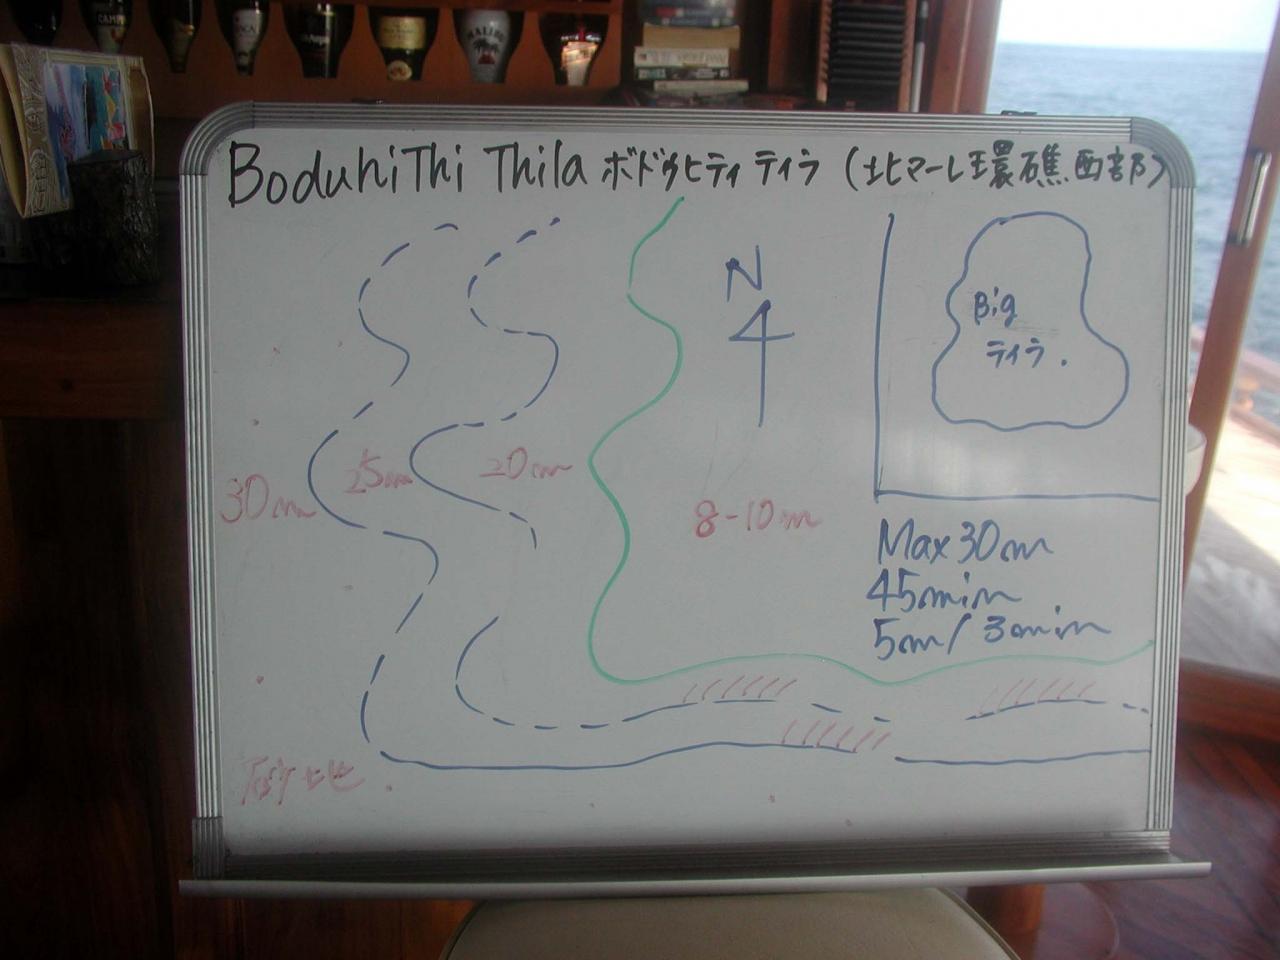 BoduhiThi Thila ボドゥヒティ ティラ (北マーレ環礁 西部)
N
Big
ティラ.
30m 25m 20m
8-10m
Max 30m
45min
5m/3min
砂地
CAMPA
MALIBU